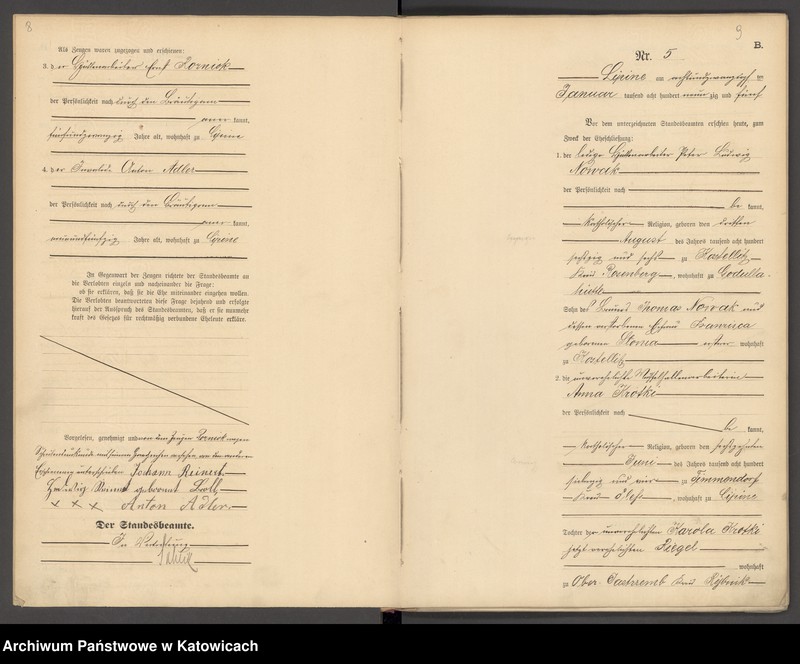 8
Als Zeugen waren zugezogen und erschienen:
3. der Hüttenarbeiter
der Persönlichkeit nach durch den Bräutigam
aner kannt,
fünfundzwanzig Jahre alt, wohnhaft zu Lipine
4. der Invalide Anton Adler
der Persönlichkeit nach durch den Bräutigam
aner kannt,
Jahre alt, wohnhaft zu Lipine
In Gegenwart der Zeugen richtete der Standesbeamte an
die Verlobten einzeln und nacheinander die Frage:
ob sie erklären, daß sie die Ehe miteinander eingehen wollen.
Die Verlobten beantworteten diese Frage bejahend und erfolgte
hierauf der Ausspruch des Standesbeamten, daß er sie nunmehr
kraft des Gesetzes für rechtmäßig verbundene Eheleute erkläre.
Vorgelesen, genehmigt und von dem Zeugen wegen
Schreibensunkunde mit seinem Handzeichen versehen, von den anderen
Erschienenen unterschrieben Johann Reinert
Hedwig geborene
x x x Anton Adler
Der Standesbeamte.
In Vertretung
9
B.
Nr. 5
Lipine am achtundzwanzigsten
Januar tausend acht hundert neun zig und fünf
Vor dem unterzeichneten Standesbeamten erschien heute, zum
Zweck der Eheschließung:
1. der ledige Hüttenarbeiter Peter Ludwig
Nowak
der Persönlichkeit nach
be kannt,
katholischer Religion, geboren den dritten
August des Jahres tausend acht hundert
sechzig und sechs zu Kostellitz
Kreis Rosenberg, wohnhaft zu Godulla-
hütte
Sohn des Thomas Nowak und
dessen verstorbenen Ehefrau Franziska
geborenen Sloma wohnhaft
zu Kostellitz
2. die unverehelichte
Anna Krotki
der Persönlichkeit nach
be kannt,
katholischer Religion, geboren den sechszehnten
Juni des Jahres tausend acht hundert
siebzig und vier zu Timmendorf
Kreis Pleß, wohnhaft zu Lipine
Tochter der unverehelichten Karola Krotki
jetzt verehelichten Piegel
wohnhaft
zu Ober Jastrzemb Kreis Rybnik
Archiwum Państwowe w Katowicach